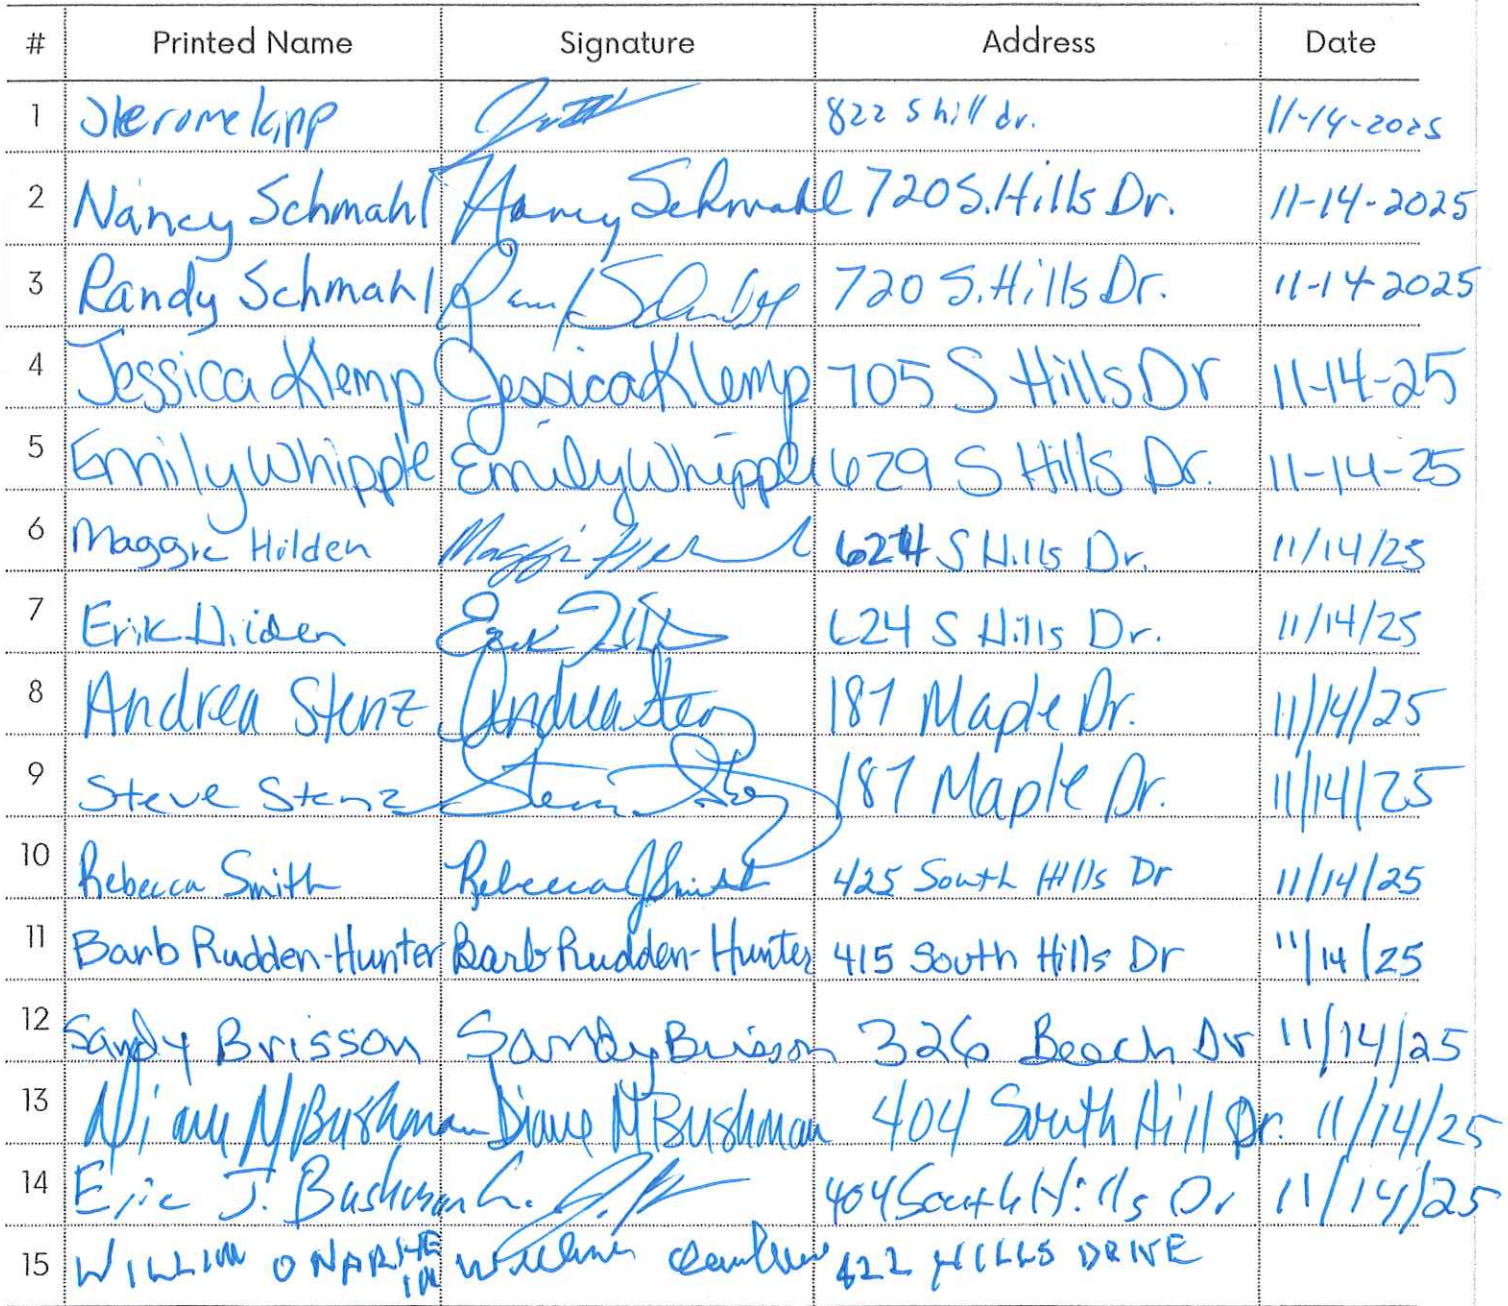 # Printed Name Signature Address Date
1 Jerome Kipp 822 S hill dr. 11-14-2025
2 Nancy Schmahl Nancy Schmahl 720 S. Hills Dr. 11-14-2025
3 Randy Schmahl 720 S. Hills Dr. 11-14-2025
4 Jessica Klemp Jessica Klemp 705 S Hills Dr 11-14-25
5 Emily Whipple Emily Whipple 629 S Hills Dr. 11-14-25
6 Maggie Hilden Maggie 624 S Hills Dr. 11/14/25
7 Erik Hilden Erik 624 S Hills Dr. 11/14/25
8 Andrea Stenz Andrea Stenz 187 Maple Dr. 11/14/25
9 Steve Stenz 187 Maple Dr. 11/14/25
10 Rebecca Smith Rebecca J Smith 425 South Hills Dr 11/14/25
11 Barb Rudden-Hunter Barb Rudden-Hunter 415 South Hills Dr 11/14/25
12 Sandy Brisson Sandy Brisson 326 Beach Dr 11/14/25
13 Diane M Bushman Diane M Bushman 404 South Hill Dr. 11/14/25
14 Eric J. Bushman 404 South Hills Dr 11/14/25
15 422 HILLS DRIVE